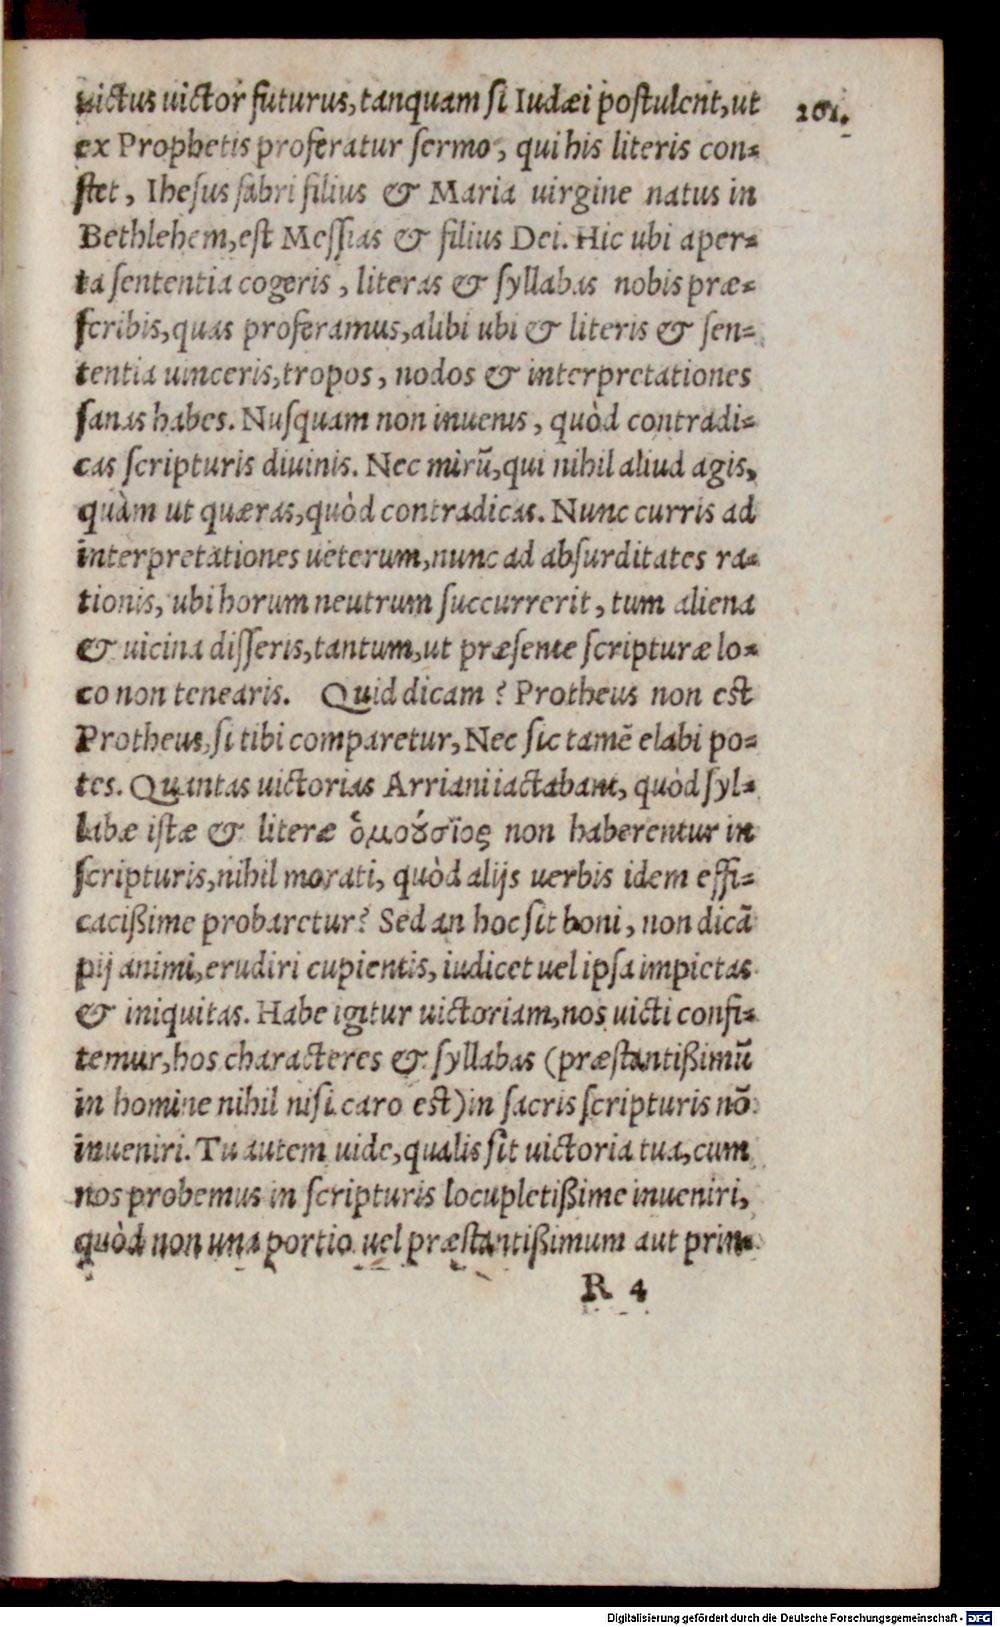 uictus uictor futurus, tanquam si Iudæi postulent, ut
201.
ex Prophetis proferatur sermo, qui his literis con=
stet, Ihesus fabri filius & Maria uirgine natus in
Bethlehem, est Messias & filius Dei. Hic ubi aper=
ta sententia cogeris, literas & syllabas nobis præ=
scribis, quas proferamus, alibi ubi & literis & sen=
tentia uinceris, tropos, nodos & interpretationes
sanas habes. Nusquam non inuenis, quòd contradi=
cas scripturis diuinis. Nec mirũ, qui nihil aliud agis,
quàm ut quæras, quòd contradicas. Nunc curris ad
interpretationes ueterum, nunc ad absurditates ra=
tionis, ubi horum neutrum succurrerit, tum aliena
& uicina disseris, tantum, ut præsente scripturæ lo=
co non tenearis. Quid dicam? Protheus non est
Protheus, si tibi comparetur, Nec sic tamẽ elabi po=
tes. Quantas uictorias Arriani iactabant, quòd syl=
labæ istæ & literæ ὁμούσϊος non haberentur in
scripturis, nihil morati, quòd alijs uerbis idem effi=
cacißime probaretur? Sed an hoc sit boni, non dicã
pij animi, erudiri cupientis, iudicet uel ipsa impietas
& iniquitas. Habe igitur uictoriam, nos uicti confi=
temur, hos characteres & syllabas (præstantißimũ
in homine nihil nisi caro est) in sacris scripturis nõ
inueniri. Tu autem uide, qualis sit uictoria tua, cum
nos probemus in scripturis locupletißime inueniri,
quòd non una portio uel præstantißimum aut prin=
R 4
Digitalisierung gefördert durch die Deutsche Forschungsgemeinschaft - DFG